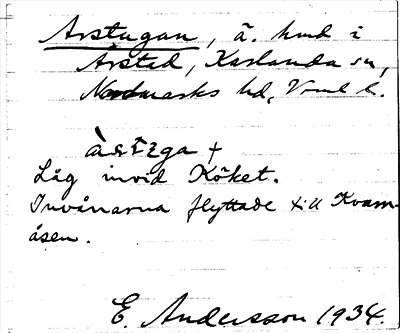 Arstugan, ä. hmd i
Årstad, Karlanda sn,
Nordmarks hd, Vrml l.
àrstɩga +
Låg invid Köket.
Invånarna flyttade till Kvarn-
åsen.
E. Andersson 1934.